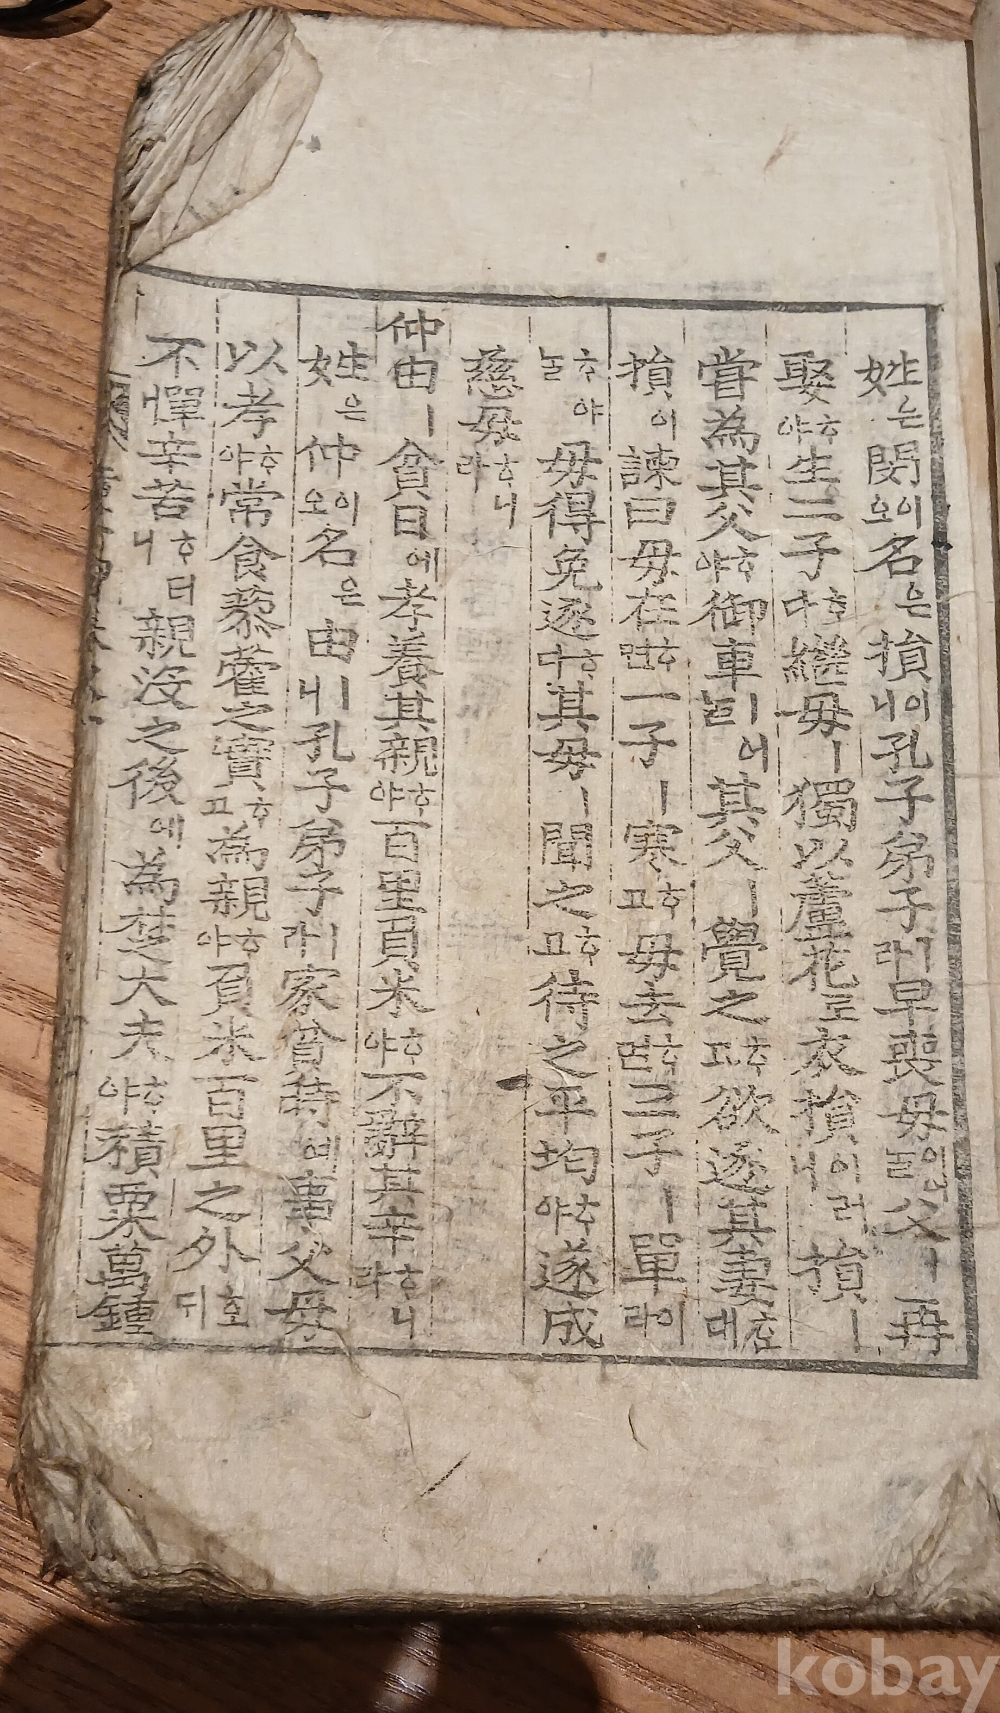 姓은閔이오名은損이니孔子弟子ㅣ라早喪母ㅣ어늘父ㅣ再
娶ᄒᆞ야生二子ᄒᆞ다繼母ㅣ獨以蘆花로衣損이러니損ㅣ
嘗為其父ᄒᆞ야御車ㅣ어ᄂᆞᆯ其父ㅣ覺之ᄒᆞ고欲逐其妻ᄒᆞᆫ대
損이諫曰母在ᄒᆞ면一子ㅣ寒ᄒᆞ고母去ᄒᆞ면三子ㅣ單이라
ᄒᆞ야ᄂᆞᆯ母得免逐ᄒᆞ다其母ㅣ聞之ᄒᆞ고待之平均ᄒᆞ야遂成
慈母ᄒᆞ니라
仲由ㅣ貧日에孝養其親ᄒᆞ야百里負米ᄒᆞ야不辭其辛ᄒᆞ니라
姓은仲이오名은由ㅣ니孔子弟子ㅣ라家貧時예事父母
以孝ᄒᆞ야常食藜藿之實ᄒᆞ고為親ᄒᆞ야負米百里之外호ᄃᆡ
不憚辛苦ᄒᆞ더니親沒之後에為楚大夫ᄒᆞ야積粟萬鍾
kobay